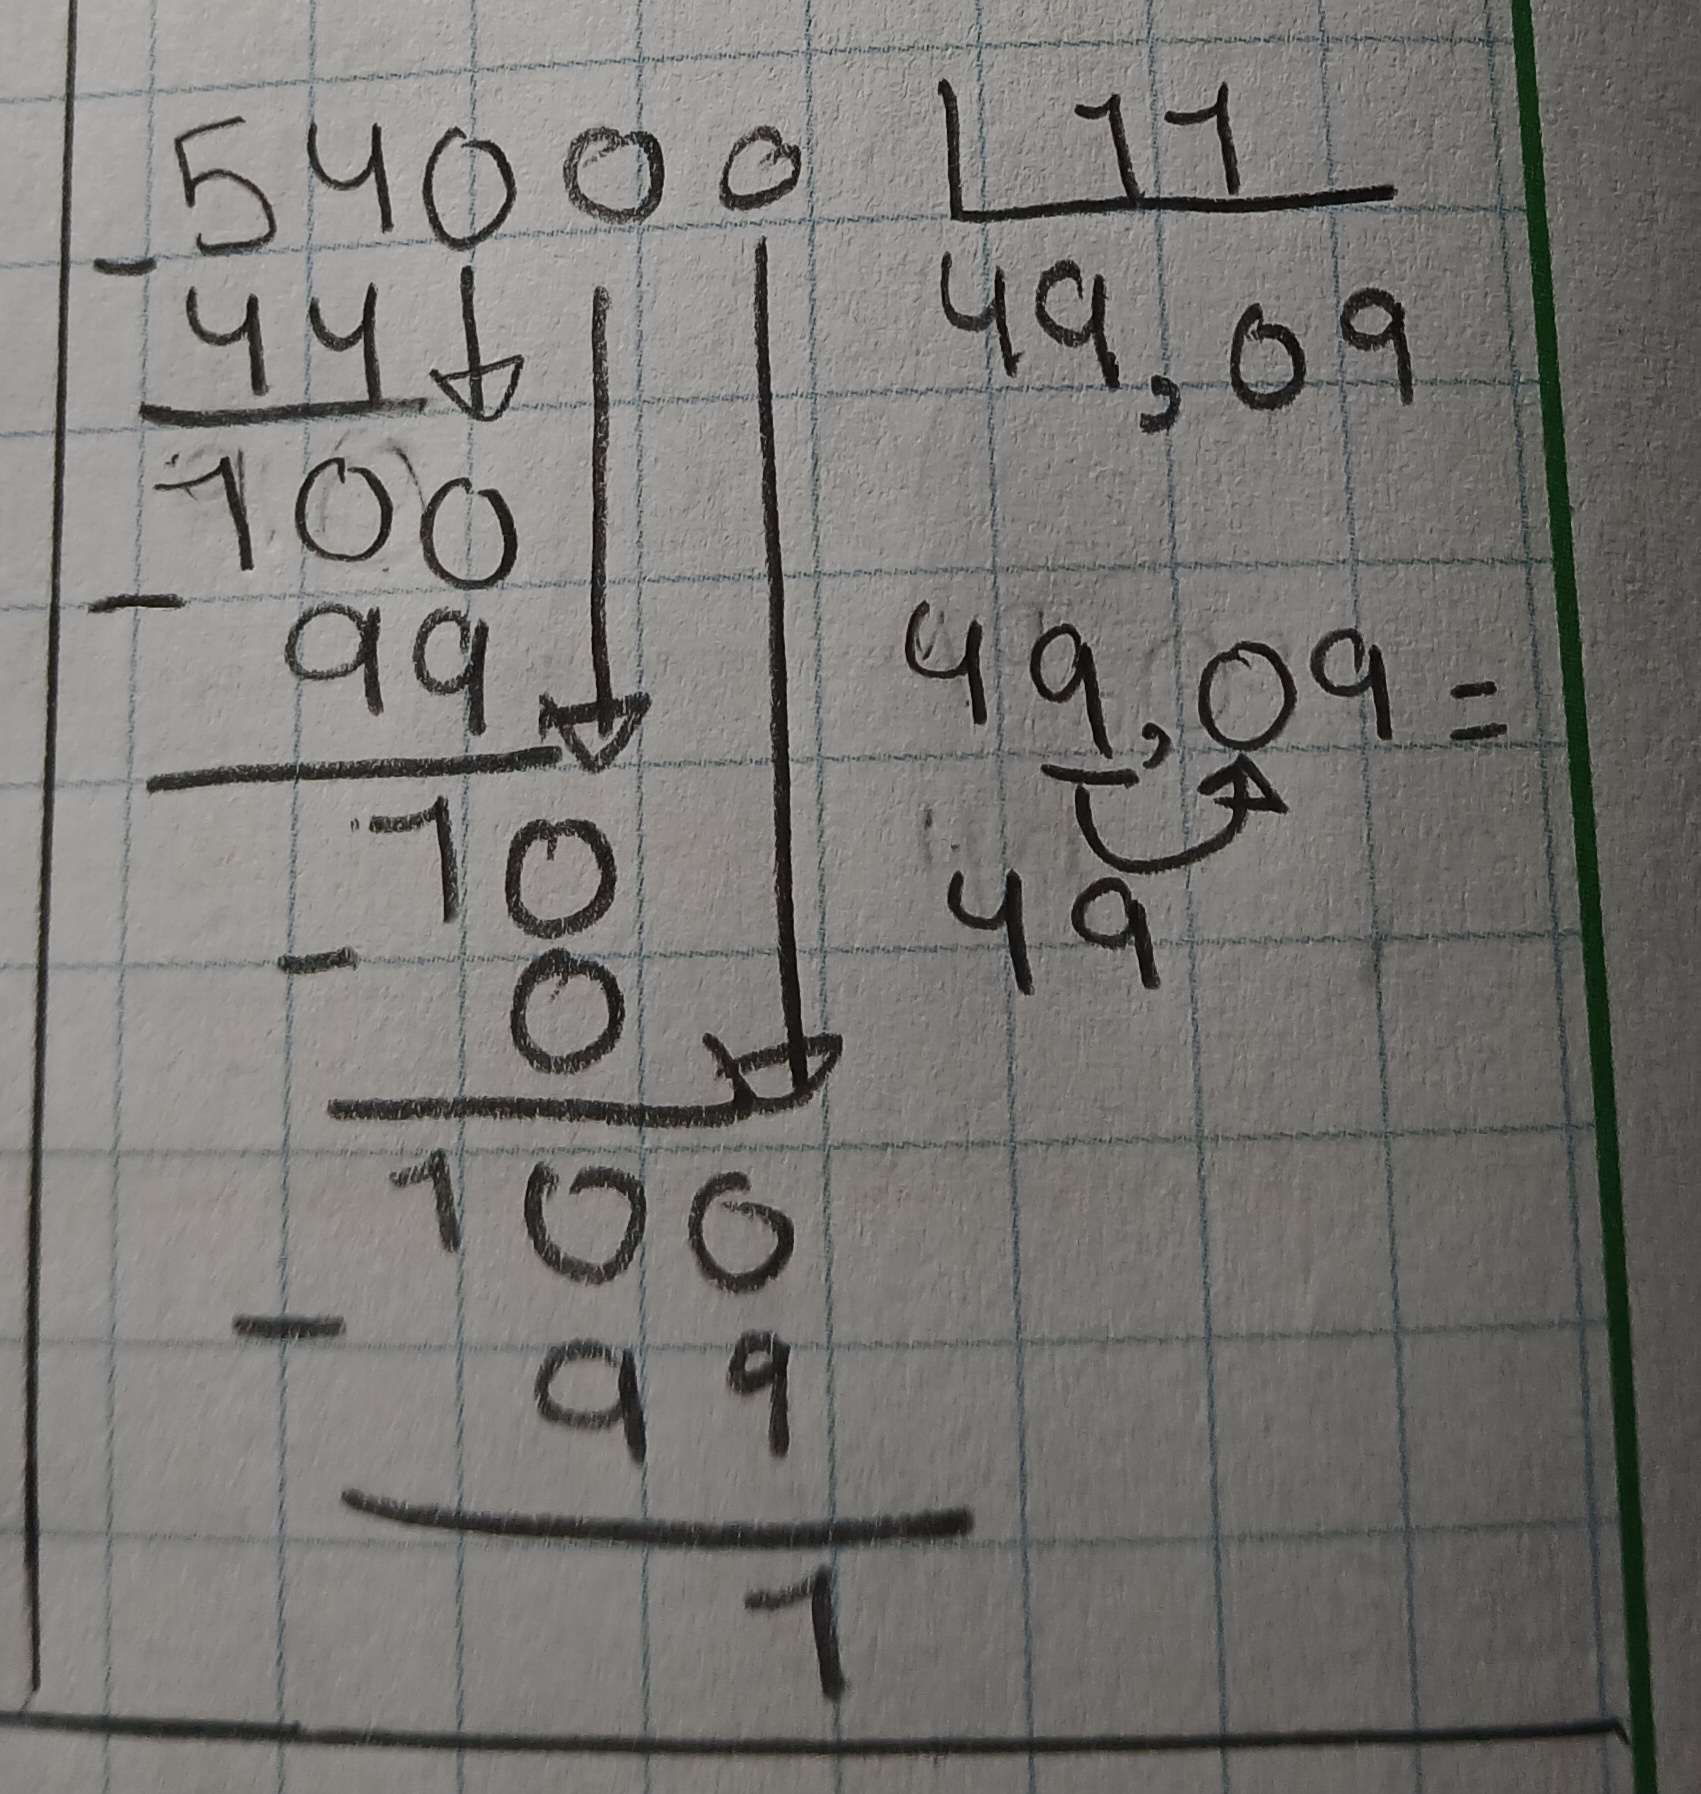 54000 11
- 44 49,09
100
- 99 49,09=
10 49
- 0
100
- 99
1